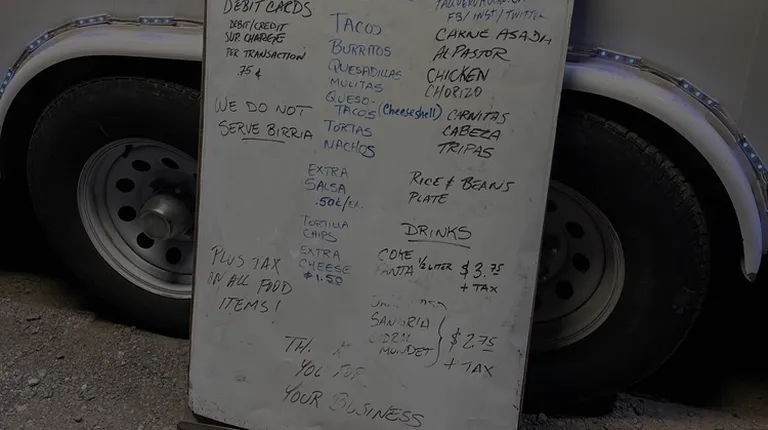 DEBIT CARDS
DEBIT/CREDIT
SUR CHARGE
PER TRANSACTION
.75¢
WE DO NOT
SERVE BIRRIA
PLUS TAX
ON ALL FOOD
ITEMS!
TACOS
BURRITOS
QUESADILLAS
MULITAS
QUESO-
TACOS (Cheeseshell)
TORTAS
NACHOS
EXTRA
SALSA
.50¢/EA.
TORTILLA
CHIPS
EXTRA
CHEESE
$1.50
FB/INST/TWITTER
CARNE ASADA
AL PASTOR
CHICKEN
CHORIZO
CARNITAS
CABEZA
TRIPAS
RICE & BEANS
PLATE
DRINKS
COKE
FANTA 1/2 LITER $3.75
+ TAX
SANGRIA
MUNDET
$2.75
+ TAX
YOU FOR
YOUR BUSINESS